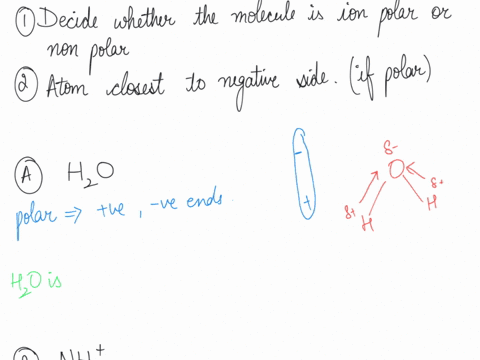 ① Decide whether the molecule is ion polar or
non polar
② Atom closest to negative side. (if polar)
Ⓐ H₂O
polar ⇒ +ve, -ve ends
-
+
δ-
O
δ+ δ+
H H
H₂O is
NH₄⁺